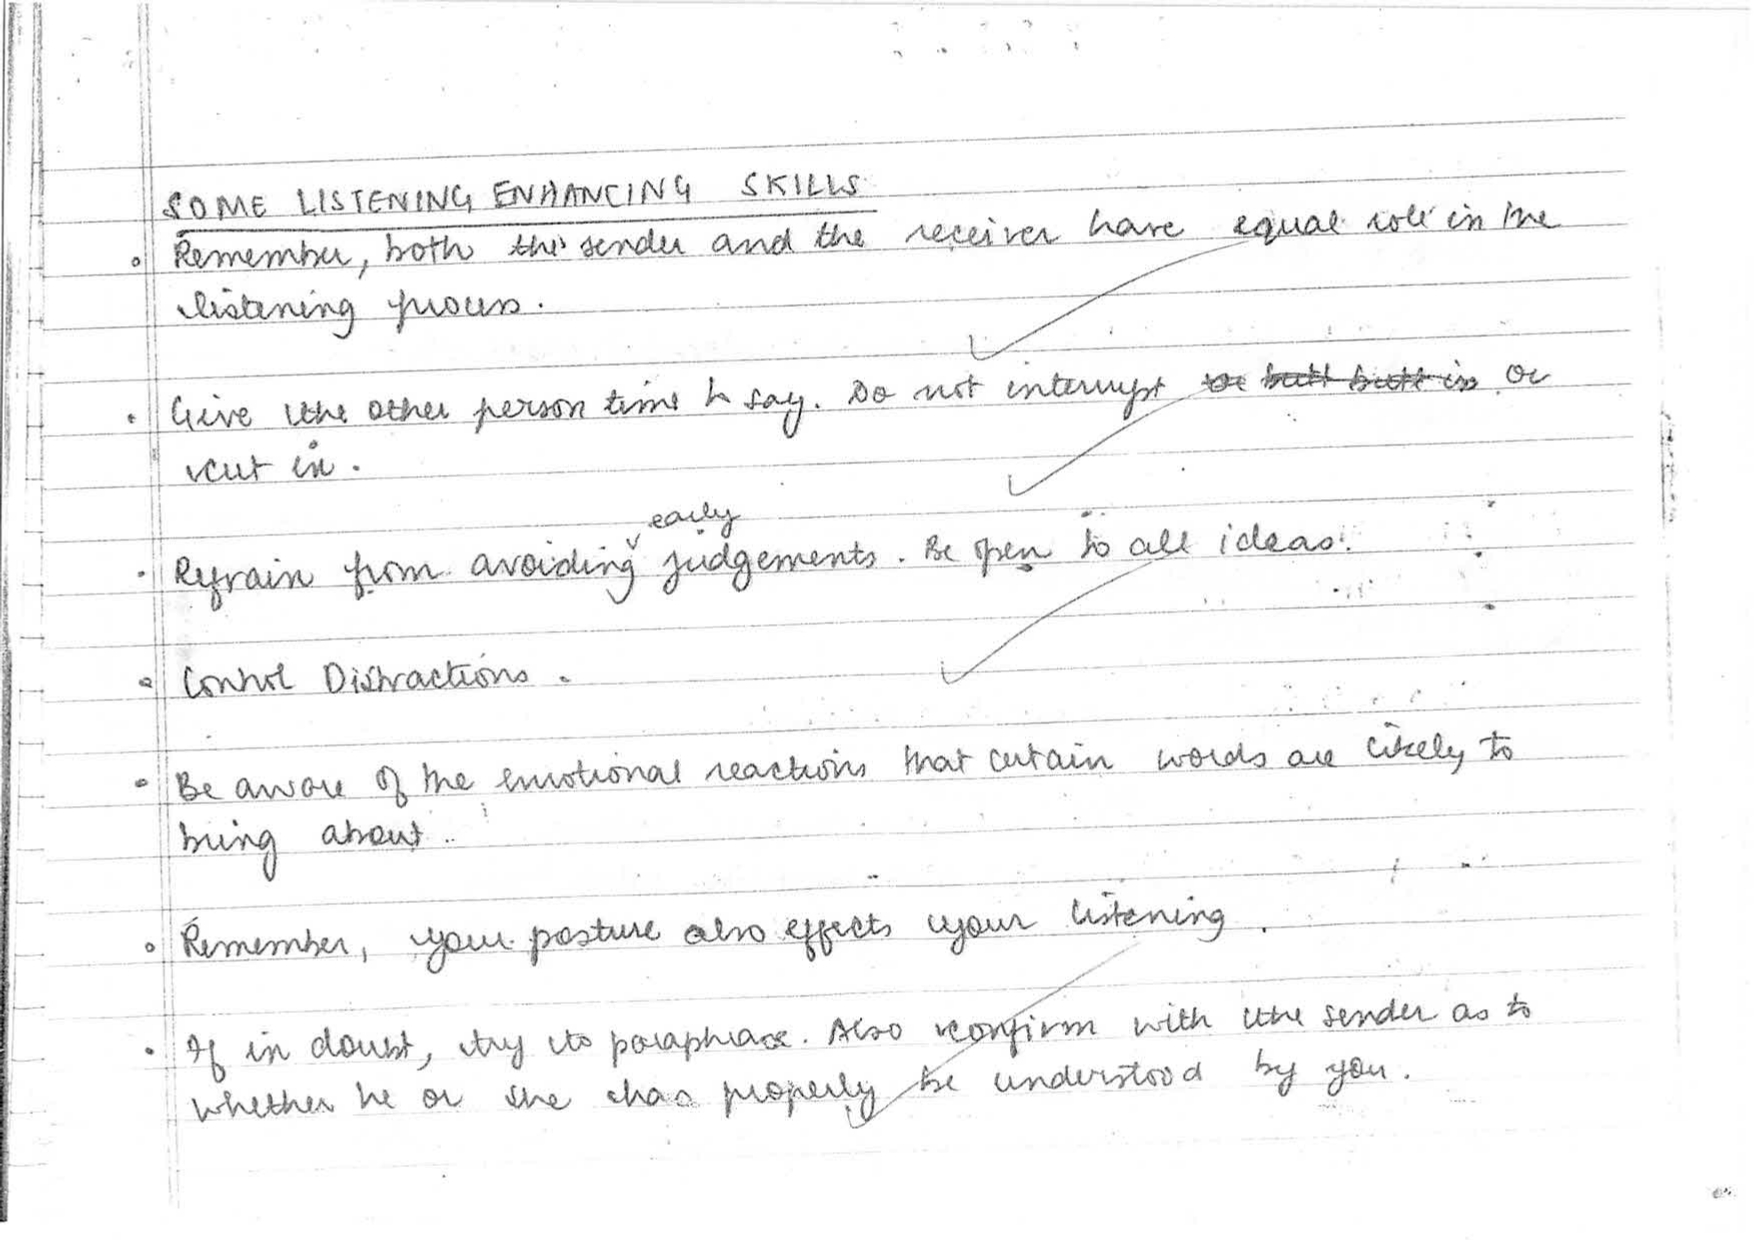 SOME LISTENING ENHANCING SKILLS
Remember, both the sender and the receiver have equal role in the
listening process.
Give the other person time to say. Do not interrupt or butt butt in or
cut in.
early
Refrain from avoiding judgements. Be open to all ideas.
Control Distractions.
Be aware of the emotional reactions that certain words are likely to
bring about.
Remember, your posture also effects your listening.
If in doubt, try to paraphrase. Also confirm with the sender as to
whether he or she has properly be understood by you.